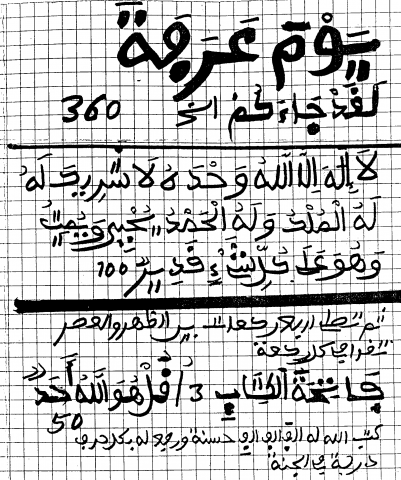 يَوْمُ عَرَفَةْ
لَقَدْ جَاءَكُمْ الخ 360
لَا إِلَهَ إِلَّا اللَّهُ وَحْدَهُ لَا شَرِيكَ لَهُ
لَهُ الْمُلْكُ وَلَهُ الْحَمْدُ يُحْيِي وَيُمِيتُ
وَهُوَ عَلَى كُلِّ شَيْءٍ قَدِيرٌ 100
ثم تصلي اربع ركعات بين الظهر والعصر
تقرا في كل ركعة
فَاتِحَةُ الْكِتَابِ 3/ قُلْ هُوَ اللَّهُ أَحَدٌ
50
كتب الله له الف الف حسنة ورفع له بكل حرف
درجة في الجنة